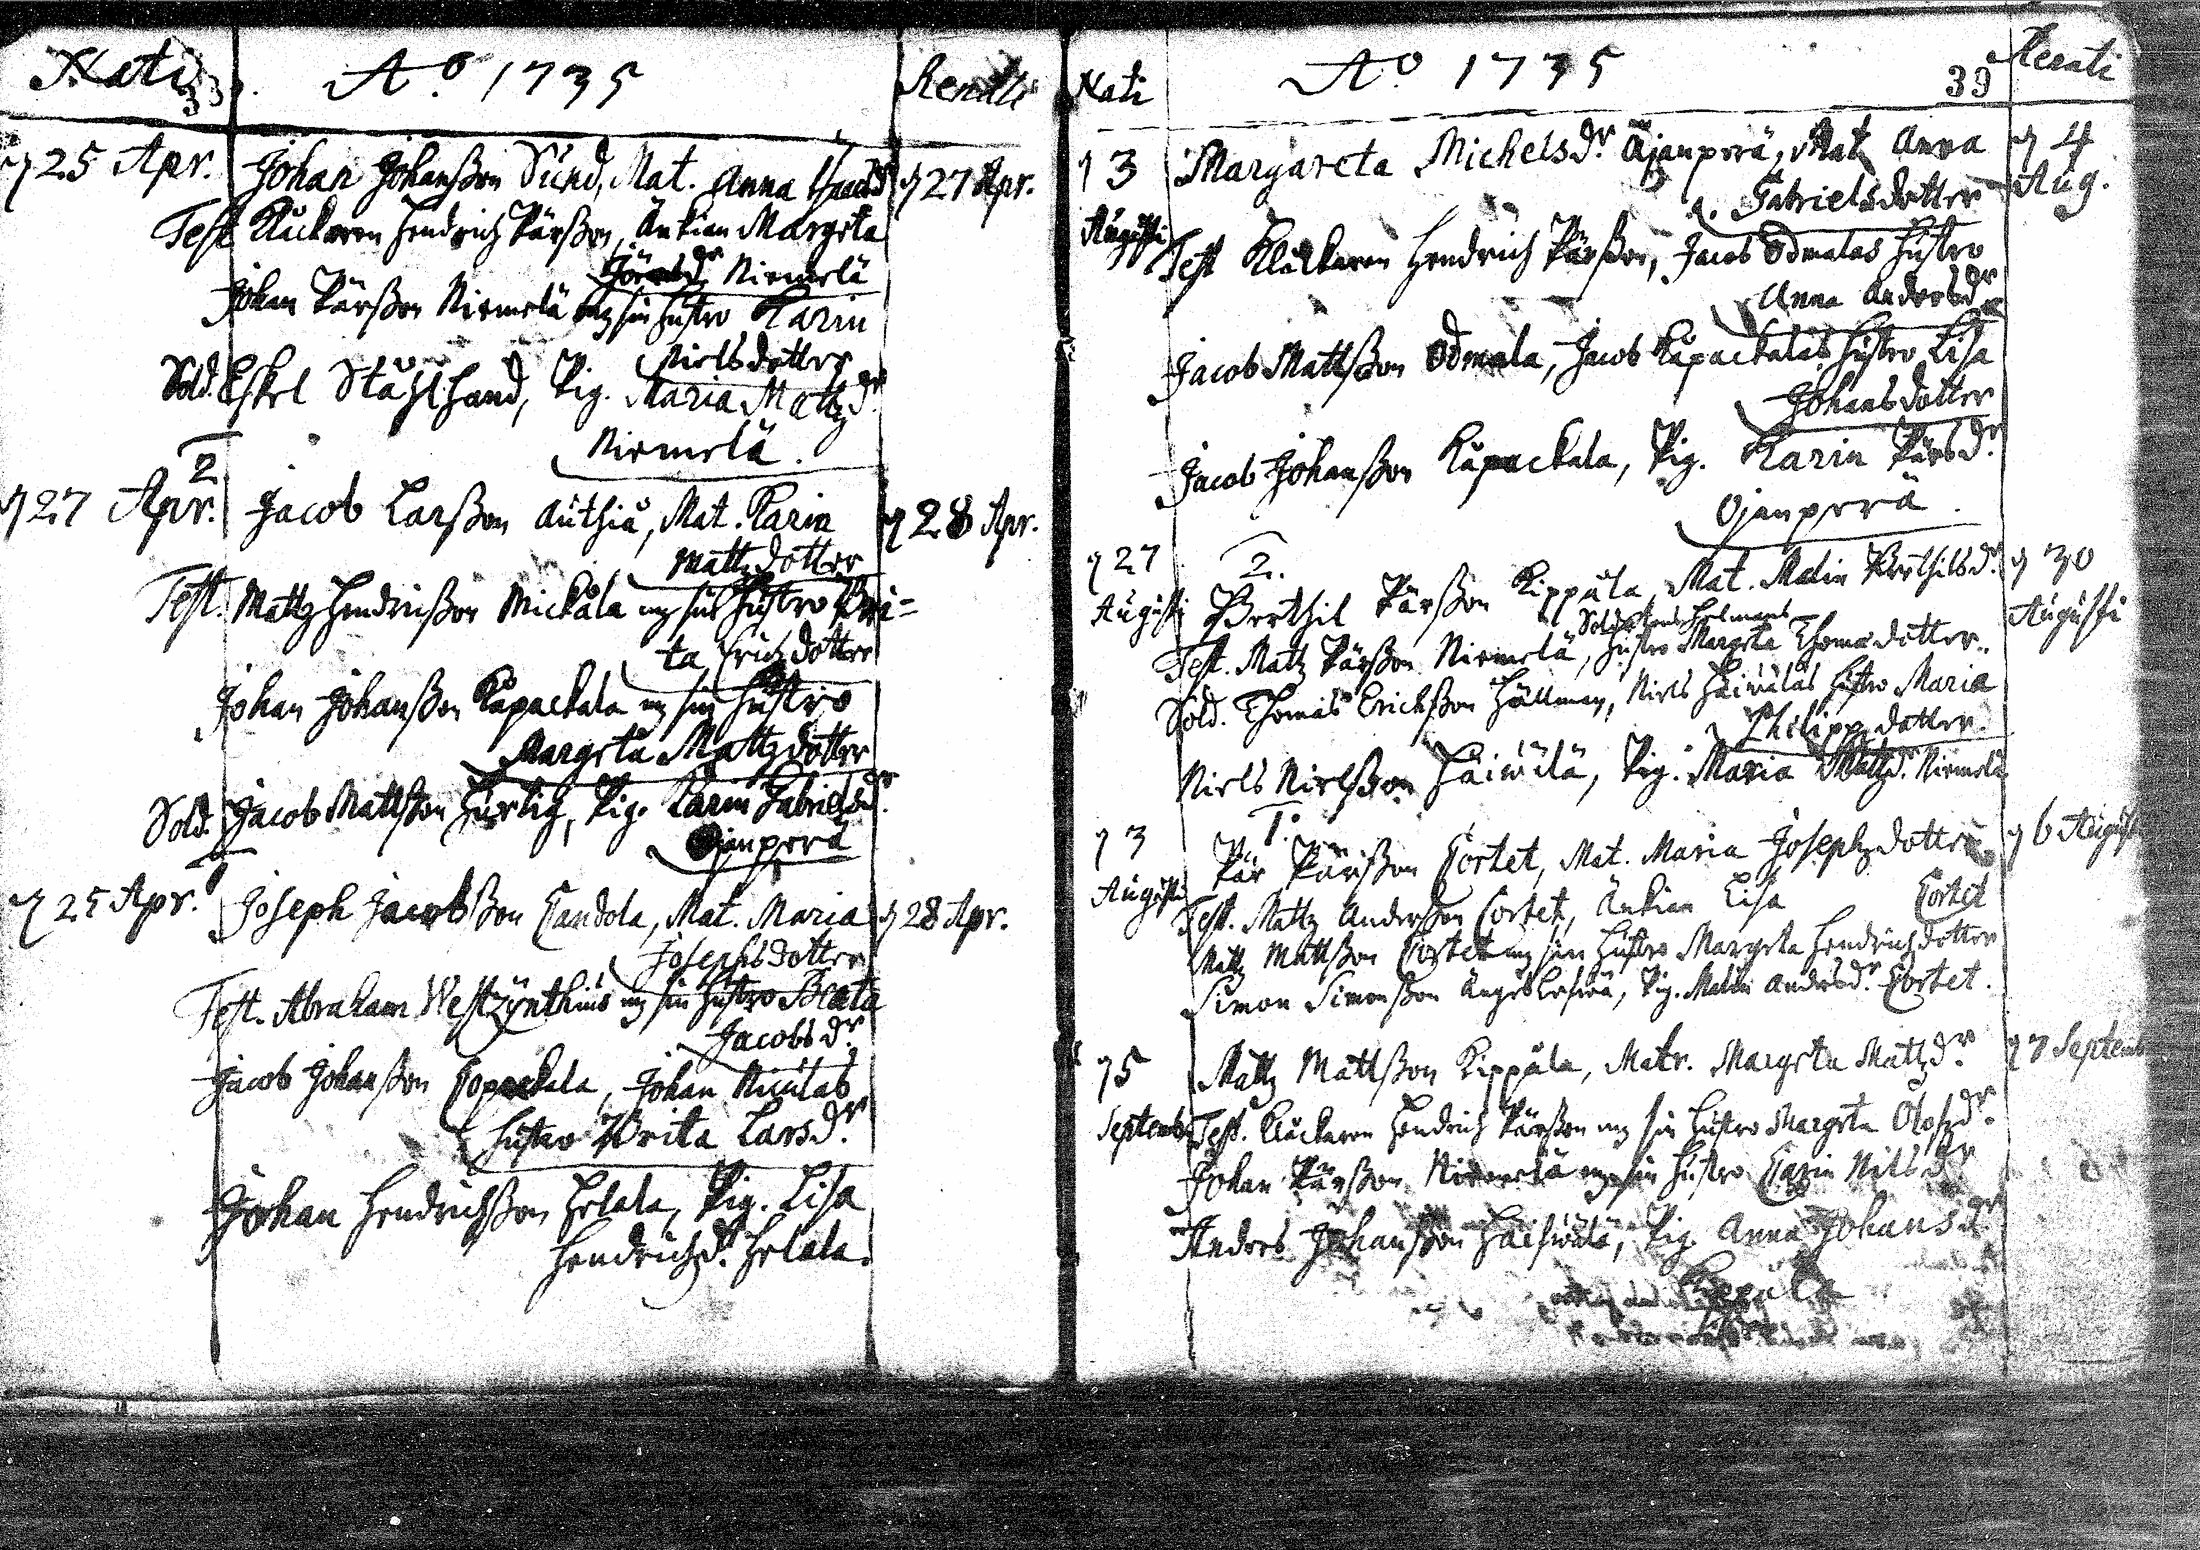 Nati
A:o 1735
Renati
d 25 Apr.
Johan Johanßon Sund, Mat. Anna
d 27 Apr.
Test Klåckaren Hendrich Pärßon, Änkian Margeta
Niemelä
Johan Pärßon Niemelä mz sin hustro Karin
Nielsdotter
Sold. Eskel Ståhlhand, Pig. Maria Mattzd:r
Niemelä.
2
d 27 Apr.
Jacob Larßon Authio, Mat. Karin
d 28 Apr.
Mattzdotter
Test. Mattz Hendrichßon Mickåla mz sin hustro Bri=
ta Erichzdotter
Johan Johanßon Kåpackala mz sin hustro
Margeta Mattzdotter
Sold. Jacob Mattßon Hurtig, Pig. Karin Gabrielsd:r
Ojanperä
d 25 Apr.
Joseph Jacobßon Candola, Mat. Maria
d 28 Apr.
Josephsdotter
Test. Abraham Westzynthius mz sin hustro Beata
Jacobsd:r
Jacob Johanßon Copackala, Johan
hustro Brita Larsd:r
Johan Hendrichßon Helala, Pig. Lisa
Hendrichzd:r Helala.
Nati
A:o 1735
39
Renati
d 3
Augusti
Margareta Michelsd:r Ojanperä, Mat. Anna
d 4
Aug.
Gabrielsdotter
Test Klåckaren Hendrich Pärßon, Jacob Ödmalas hustro
Anna Andersd:r
Jacob Mattßon Ödmala, Jacob Kåpackalas hustro Lisa
Johansdotter
Jacob Johanßon Kåpackala, Pig. Karin Pärsd:r
Ojanperä
d 27
Augusti
2.
Berthil Pärßon Kippåla, Mat. Malin Berthilsd:r
d 30
Augusti
Soldatens Helmans
Test. Mattz Pärßon Niemelä, hustro Margeta Thomædotter.
Sold. Thomas Erichßon Hällman, Niels Häiwäläs hustro Maria
Philippzdotter.
Niels Nielßon Häiwälä, Pig. Maria Mattzd:r Niemelä
T:
d 3
Augusti
Pär Pärßon Cortet, Mat. Maria Josephzdotter
d 6 Augusti
Cortet
Test. Mattz Anderßon Cortet, Änkian Lisa
Mattz Mattßon Cortet mz sin hustro Margeta Hendrichzdotter
Simon Simonßon Ånges Lesewä, Pig. Malin Andersd:r Cortet.
d 5
Septemb
Mattz Mattßon Kippåla, Matr. Margeta Mattzd:r
d 7 Septemb
Test. Klåckaren Hendrich Pärßon mz sin hustro Margeta Olofzd:r
Johan Pärßon Niemelä mz sin hustro Carin Nielsd:r
Anders Johanßon Häiwälä, Pig. Anna Johansd:r
Kippåla